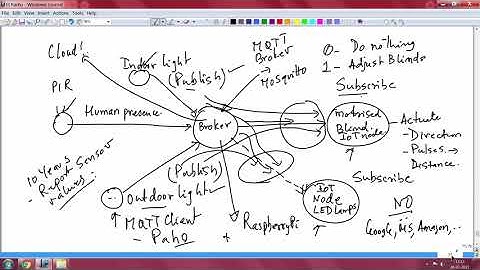 Cloud!
Indoor light
(Publish)
MQTT
Broker
Mosquitto
0- Do nothing
1- Adjust Blinds
Subscribe
PIR
Human presence
Broker
motorised
Blind
IoT node
Actuate
- Direction
- Pulses
Distance
Subscribe
10 years
- Report Sensor
values
(Publish)
Outdoor light
MQTT Client
- Paho
RaspberryPi
IoT
Node
LED lamps
NO
Google, MS, Amazon, ..